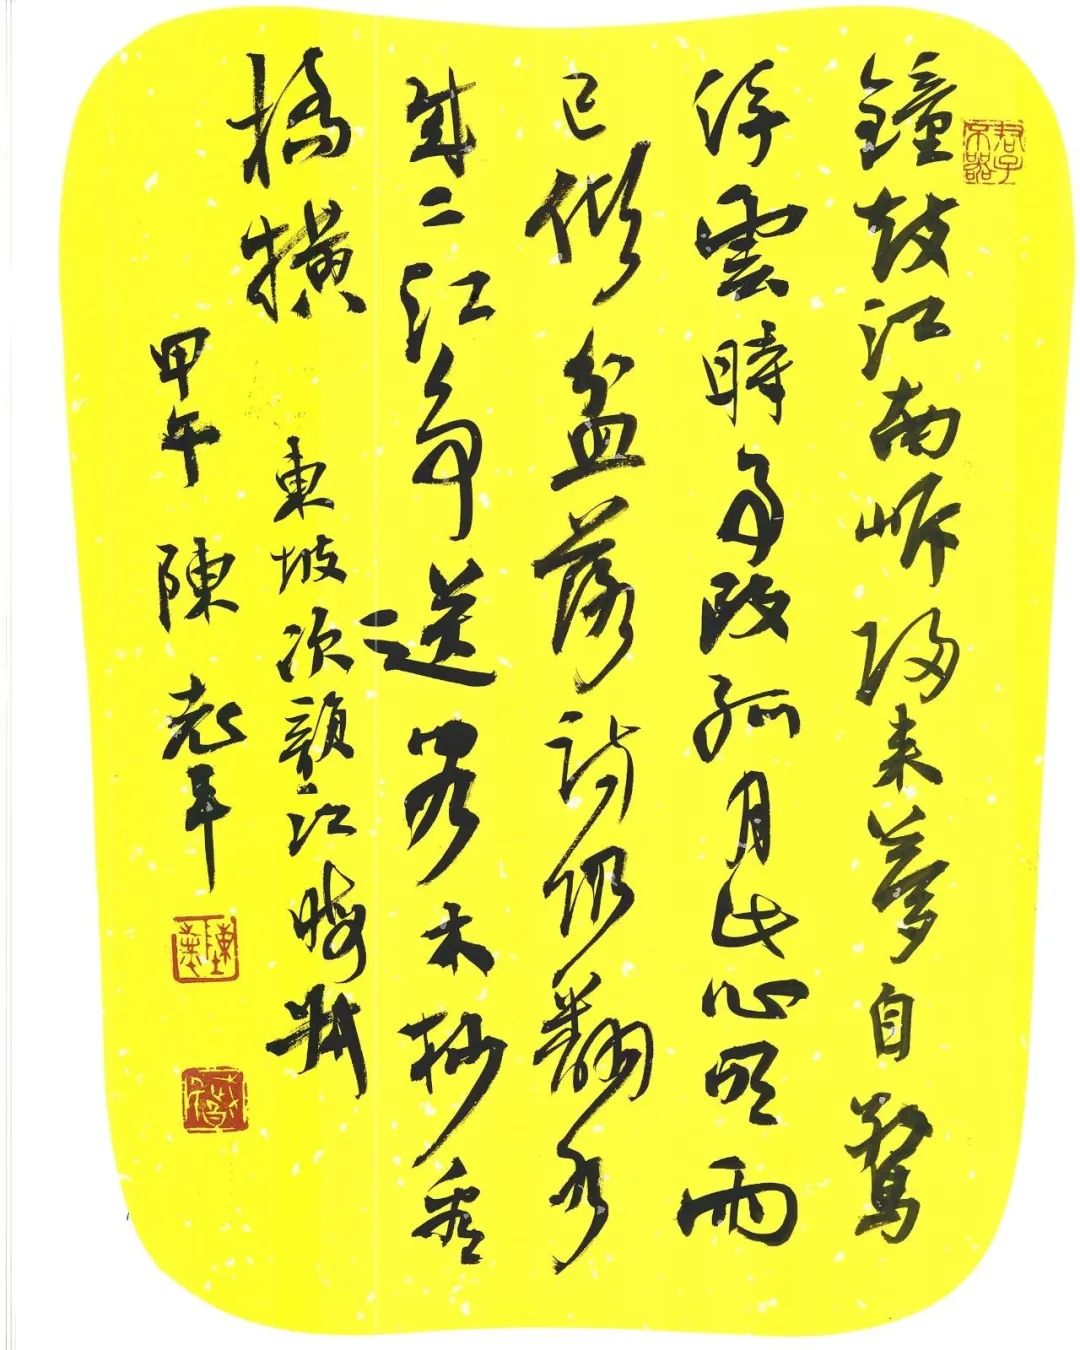 君子不器
鐘鼓江南岸歸来夢自驚
浮雲時事改孤月此心明雨
已傾盆落詩仍翻水
成二江争送客木杪看
橋橫
東坡次韻江晦叔
甲午 陳